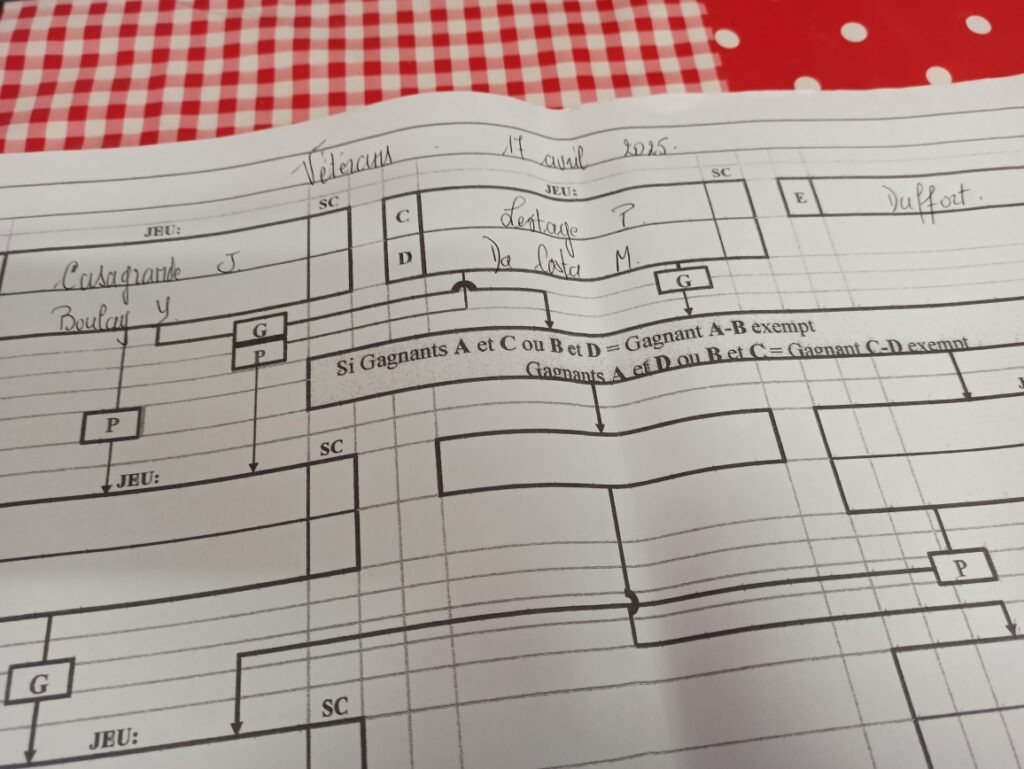 Vétérans 17 avril 2025.
JEU: SC
Casagrande J.
Boulay Y
JEU: SC
C Lestage P.
D Da Costa M.
E Duffort.
G
P
G
Si Gagnants A et C ou B et D = Gagnant A-B exempt
Gagnants A et D ou B et C = Gagnant C-D exempt
P
JEU: SC
P
G
JEU: SC